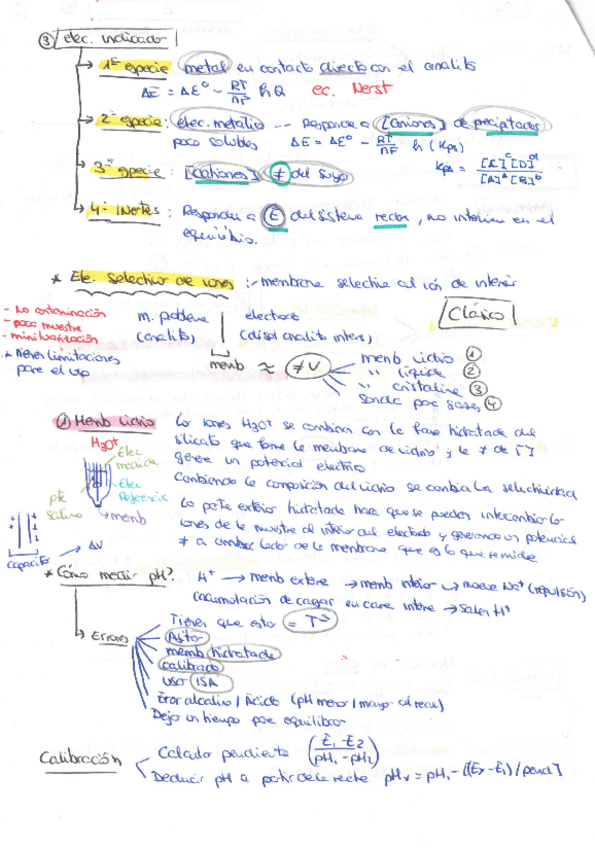 ③ elec. indicador
1ª especie metal en contacto directo con el analito
ΔE = ΔEº - RT/nF ln Q ec. Nerst
2ª especie: elec. metálico --- Responde a [aniones] de precipitados
poco solubles ΔE = ΔEº - RT/nF ln (Kps) Kps = [C]ᶜ[D]ᵈ / [A]ᵃ[B]ᵇ
3ª especie: [cationes] ≠ del suyo
4- INertes: Responden a E del sistema redox, no intervien en el
equilibrio.
* Ele. Selectivo de iones :- membrana selectiva al ión de interés
- No contaminación
- poca muestra
- miniturización
* tienen limitaciones
para el uso
m. problema | electrodo
(analito) (disol analito interr)
Clásico
memb ≈ ≠ V
memb vidrio ①
" liquida ②
" cristalina ③
sonda para gases ④
① Memb vidrio
H₃O⁺
Elec medida
Elec Referencia
memb
capacitor → ΔV
Lo iones H₃O⁺ se combina con la fase hidratada del
silicato que forma la membrana de vidrio y la ≠ de [ ]
genera un potencial eléctrico
Cambiando la composición del vidrio se cambia la selectividad
La parte exterior hidratada hace que se puedan intercambiar lo
iones de la muestra al interior del electrodo y generando un potencial
≠ a ambos lados de la membrana que es lo que se mide
* Cómo medir pH? H⁺ → memb externa → memb interior → mueve Na⁺ (repulsión)
(acumulación de cargas en cara interna → salen H⁺
Errores
Tienen que esto = Tª
Agito
memb hidratada
calibrado
uso ISA
Error alcalino / Ácido (pH menor / mayor al real)
Dejo un tiempo para equilibrar
Calibración
Calculo pendiente (E₁-E₂ / pH₁-pH₂)
Deducir pH a partir de la recta pHx = pH₁ - [(Ex-E₁) / pend]